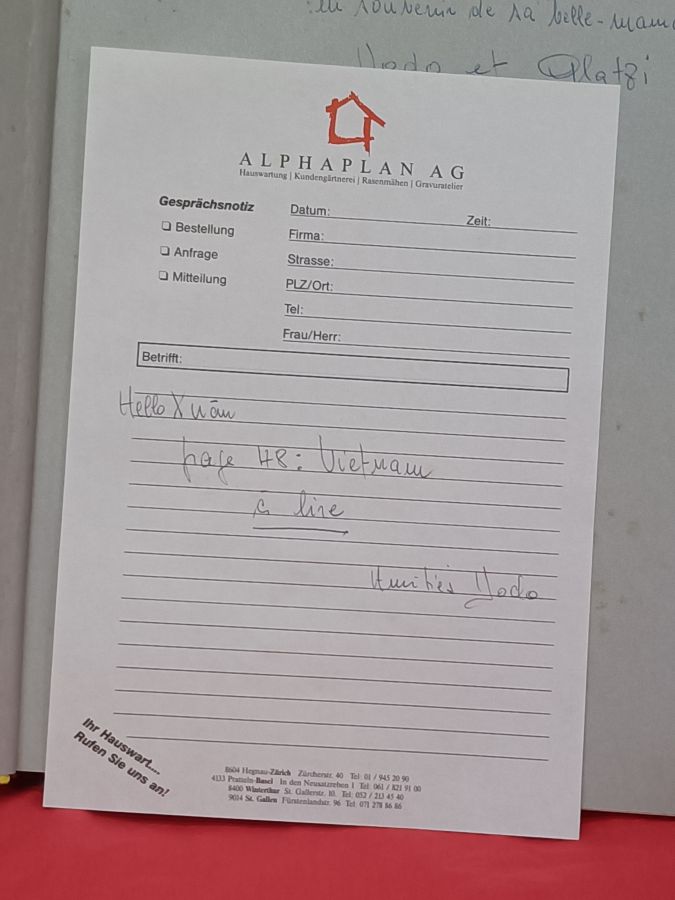 en souvenir de sa belle-mam
Dodo et Platzi
ALPHAPLAN AG
Hauswartung | Kundengärtnerei | Rasenmähen | Gravuratelier
Gesprächsnotiz
Bestellung
Anfrage
Mitteilung
Datum:
Zeit:
Firma:
Strasse:
PLZ/Ort:
Tel:
Frau/Herr:
Betrifft:
Hello Xuân
page 48: Vietnam
à lire
Amitiés Dodo
Ihr Hauswart....
Rufen Sie uns an!
8604 Hegnau-Zürich Zürcherstr. 40 Tel: 01 / 945 20 90
4133 Pratteln-Basel In den Neusatzreben 1 Tel: 061 / 821 91 00
8400 Winterthur St. Gallerstr. 10. Tel: 052 / 213 45 40
9014 St. Gallen Fürstenlandstr. 96 Tel: 071 278 86 86